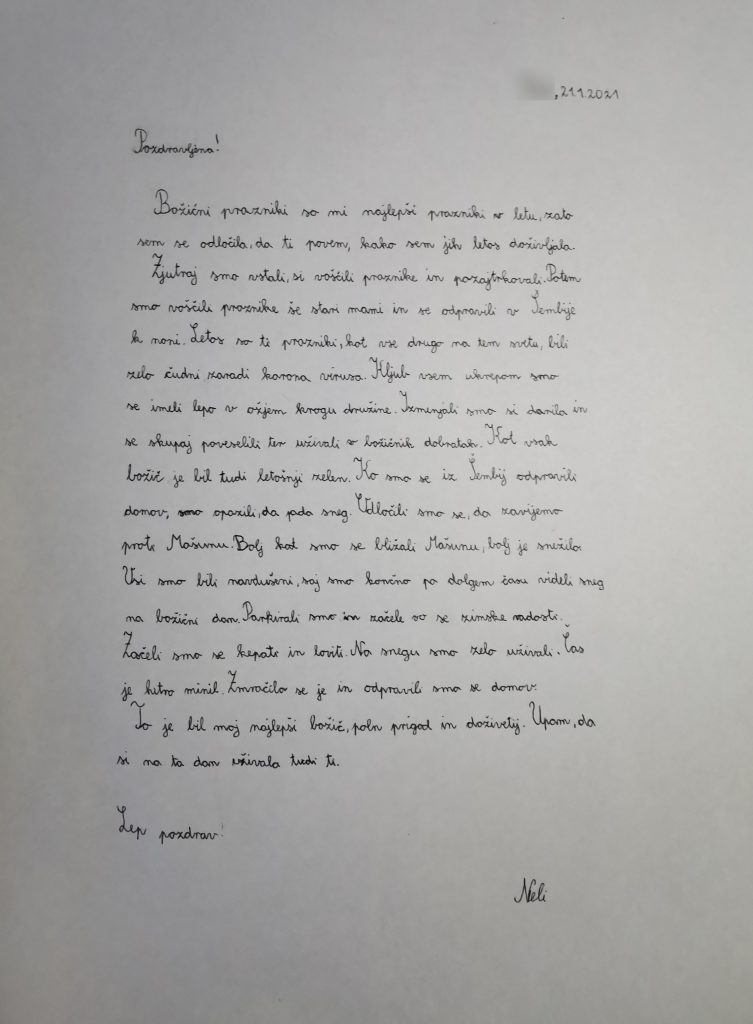 , 21.1.2021
Pozdravljena!
Božični prazniki so mi najlepši prazniki v letu, zato
sem se odločila, da ti povem, kako sem jih letos doživljala.
Zjutraj smo vstali, si voščili praznike in pozajtrkovali. Potem
smo voščili praznike še stari mami in se odpravili v Šembije
k noni. Letos so ti prazniki, kot vse drugo na tem svetu, bili
zelo čudni zaradi korona virusa. Kljub vsem ukrepom smo
se imeli lepo v ožjem krogu družine. Izmenjali smo si darila in
se skupaj poveselili ter uživali v božičnih dobrotah. Kot vsak
božič je bil tudi letošnji zelen. Ko smo se iz Šembij odpravili
domov, smo opazili, da pada sneg. Odločili smo se, da zavijemo
proti Mašunu. Bolj kot smo se bližali Mašunu, bolj je snežilo.
Vsi smo bili navdušeni, saj smo končno po dolgem času videli sneg
na božični dan. Parkirali smo in začele so se zimske radosti.
Začeli smo se kepati in loviti. Na snegu smo zelo uživali. Čas
je hitro minil. Zmračilo se je in odpravili smo se domov.
To je bil moj najlepši božič, poln prigod in doživetij. Upam, da
si na ta dan uživala tudi ti.
Lep pozdrav!
Neli